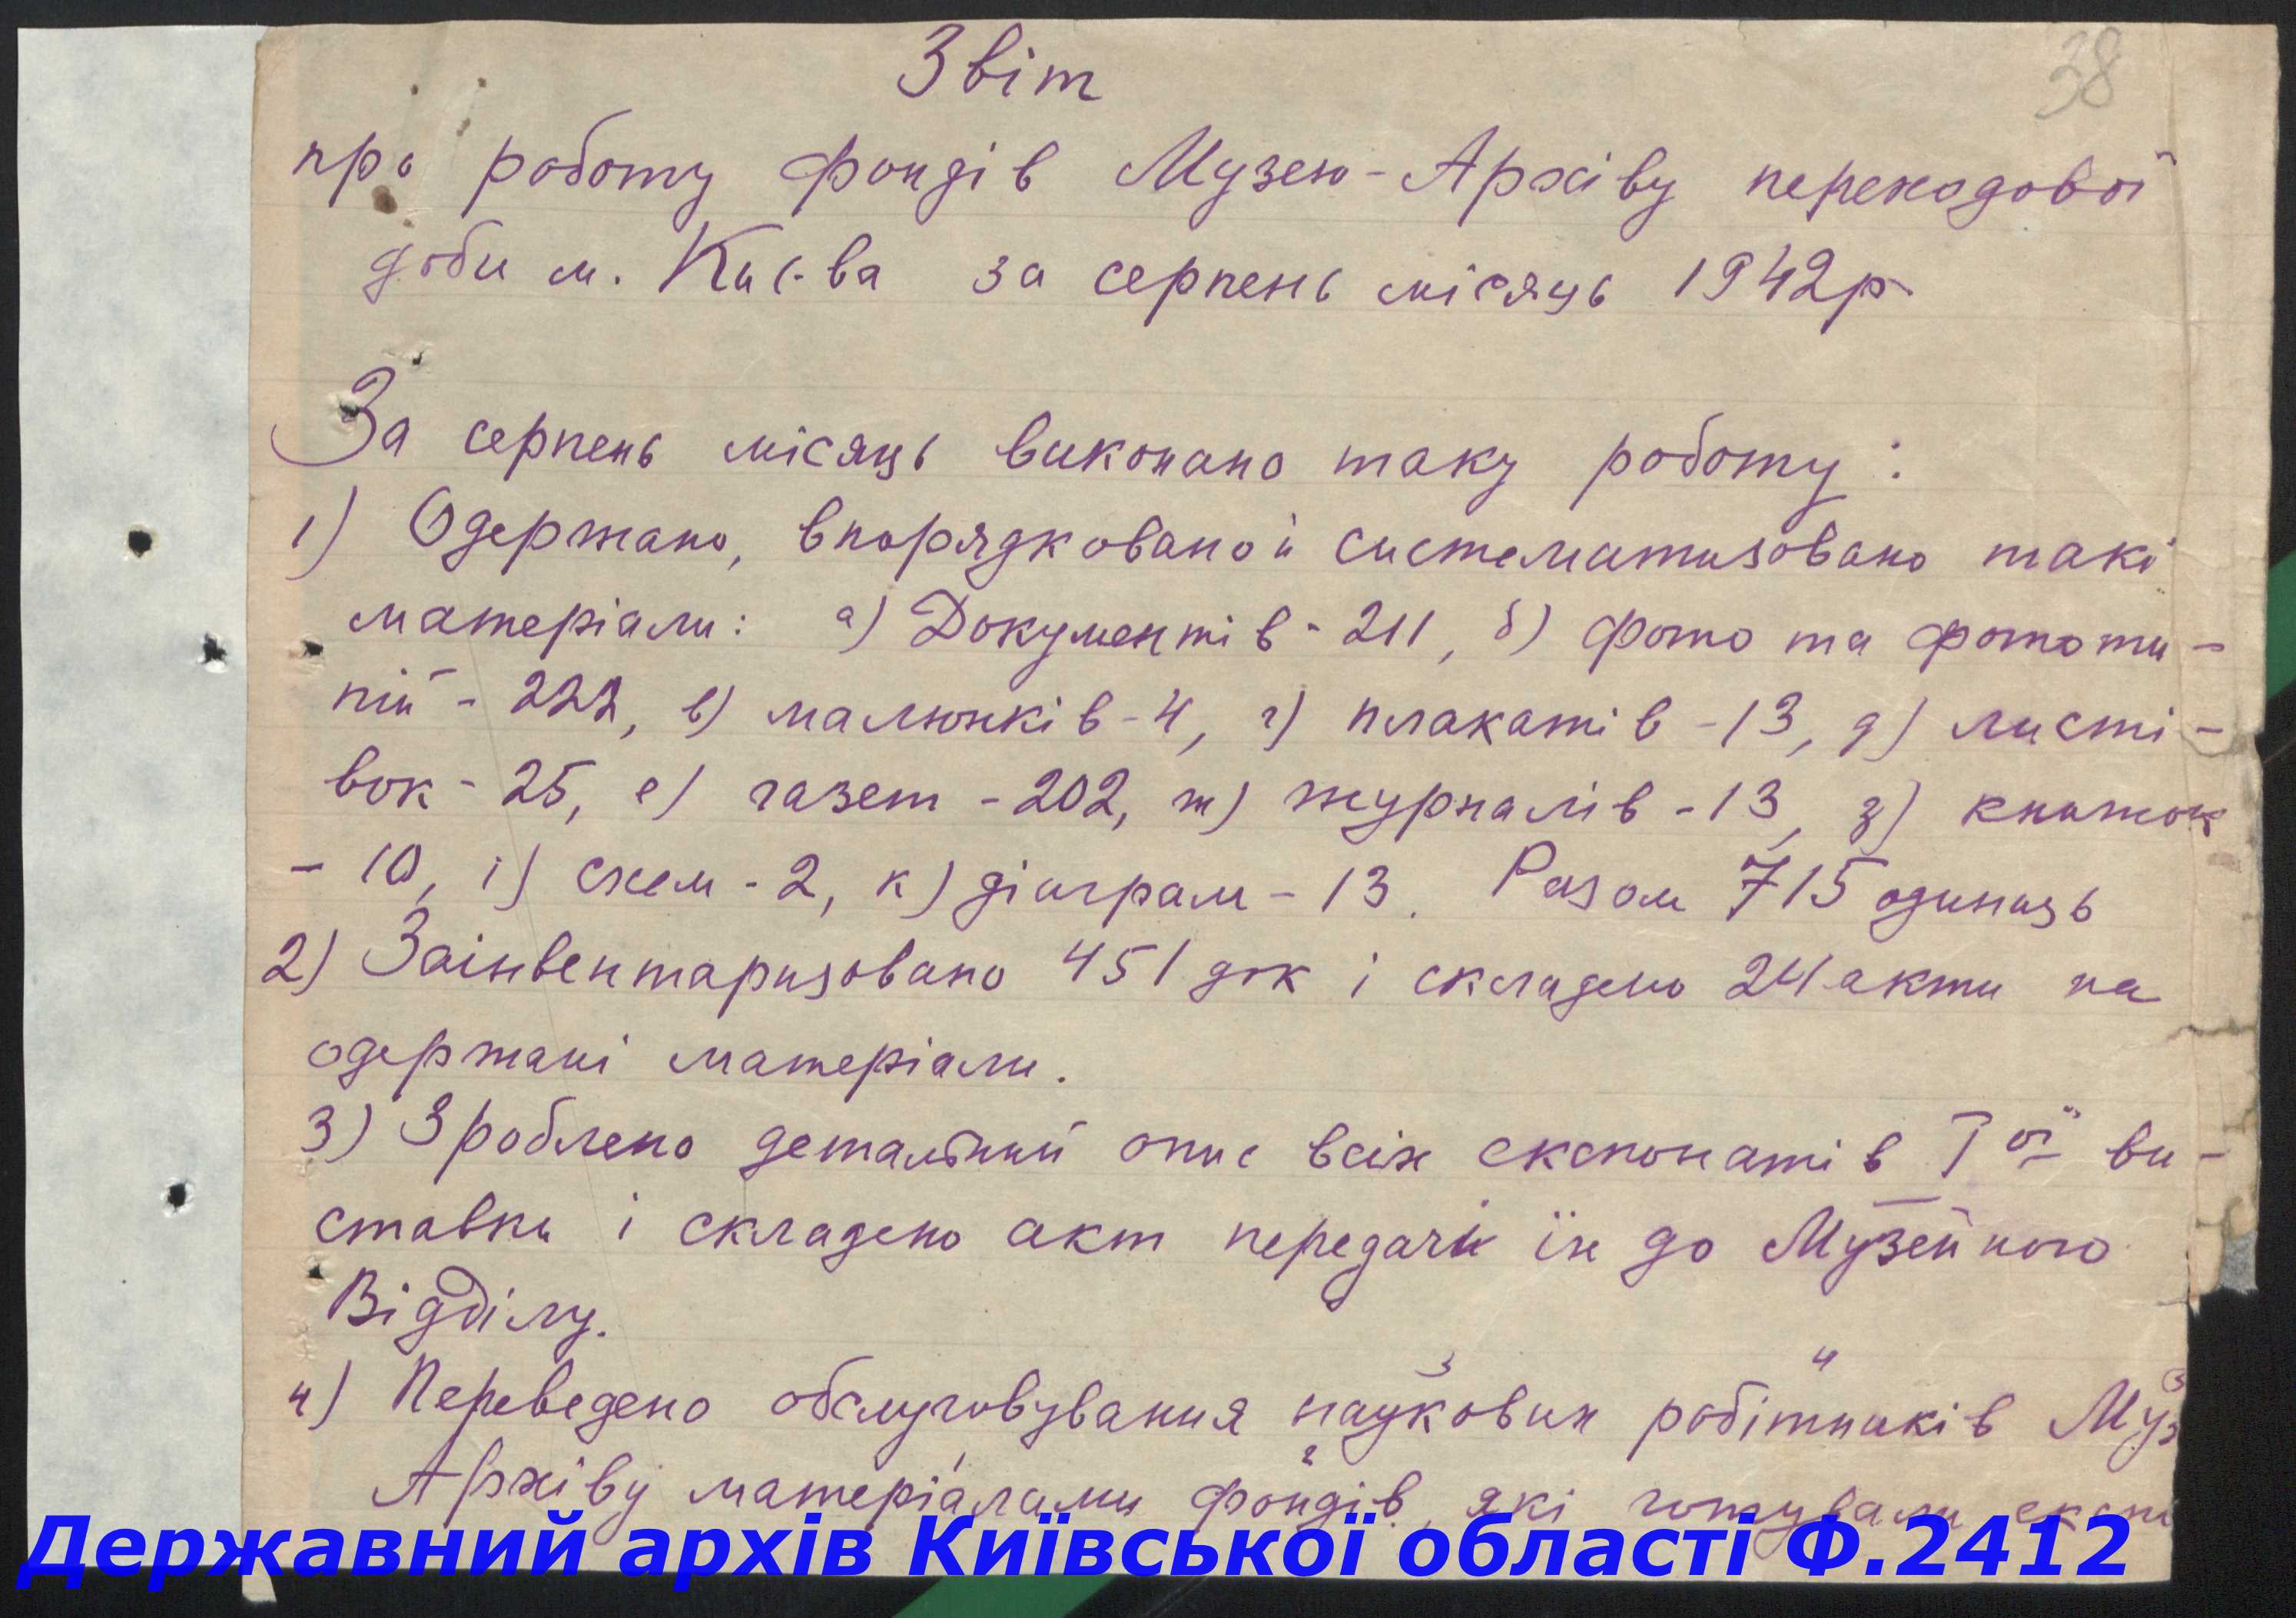 38
Звіт
про роботу фондів Музею-Архіву переходової
доби м. Києва за серпень місяць 1942р
За серпень місяць виконано таку роботу:
1) Одержано, впорядковано й систематизовано такі
матеріали: а) Документів - 211, б) фото та фототи-
пій - 222, в) малюнків - 4, г) плакатів - 13, д) листі-
вок - 25, е) газет - 202, ж) журналів - 13, з) книжок
- 10, і) схем - 2, к) діаграм - 13. Разом 715 одиниць
2) Заінвентаризовано 451 док і складено 24 акти на
одержані матеріали.
3) Зроблено детальний опис всіх експонатів I ої ви-
ставки і складено акт передачі їх до Музейного
Відділу.
3 4
4) Переведено обслуговування наукових робітників Муз
1 2
Архіву матеріалами фондів, які готували експо
Державний архів Київської області Ф.2412